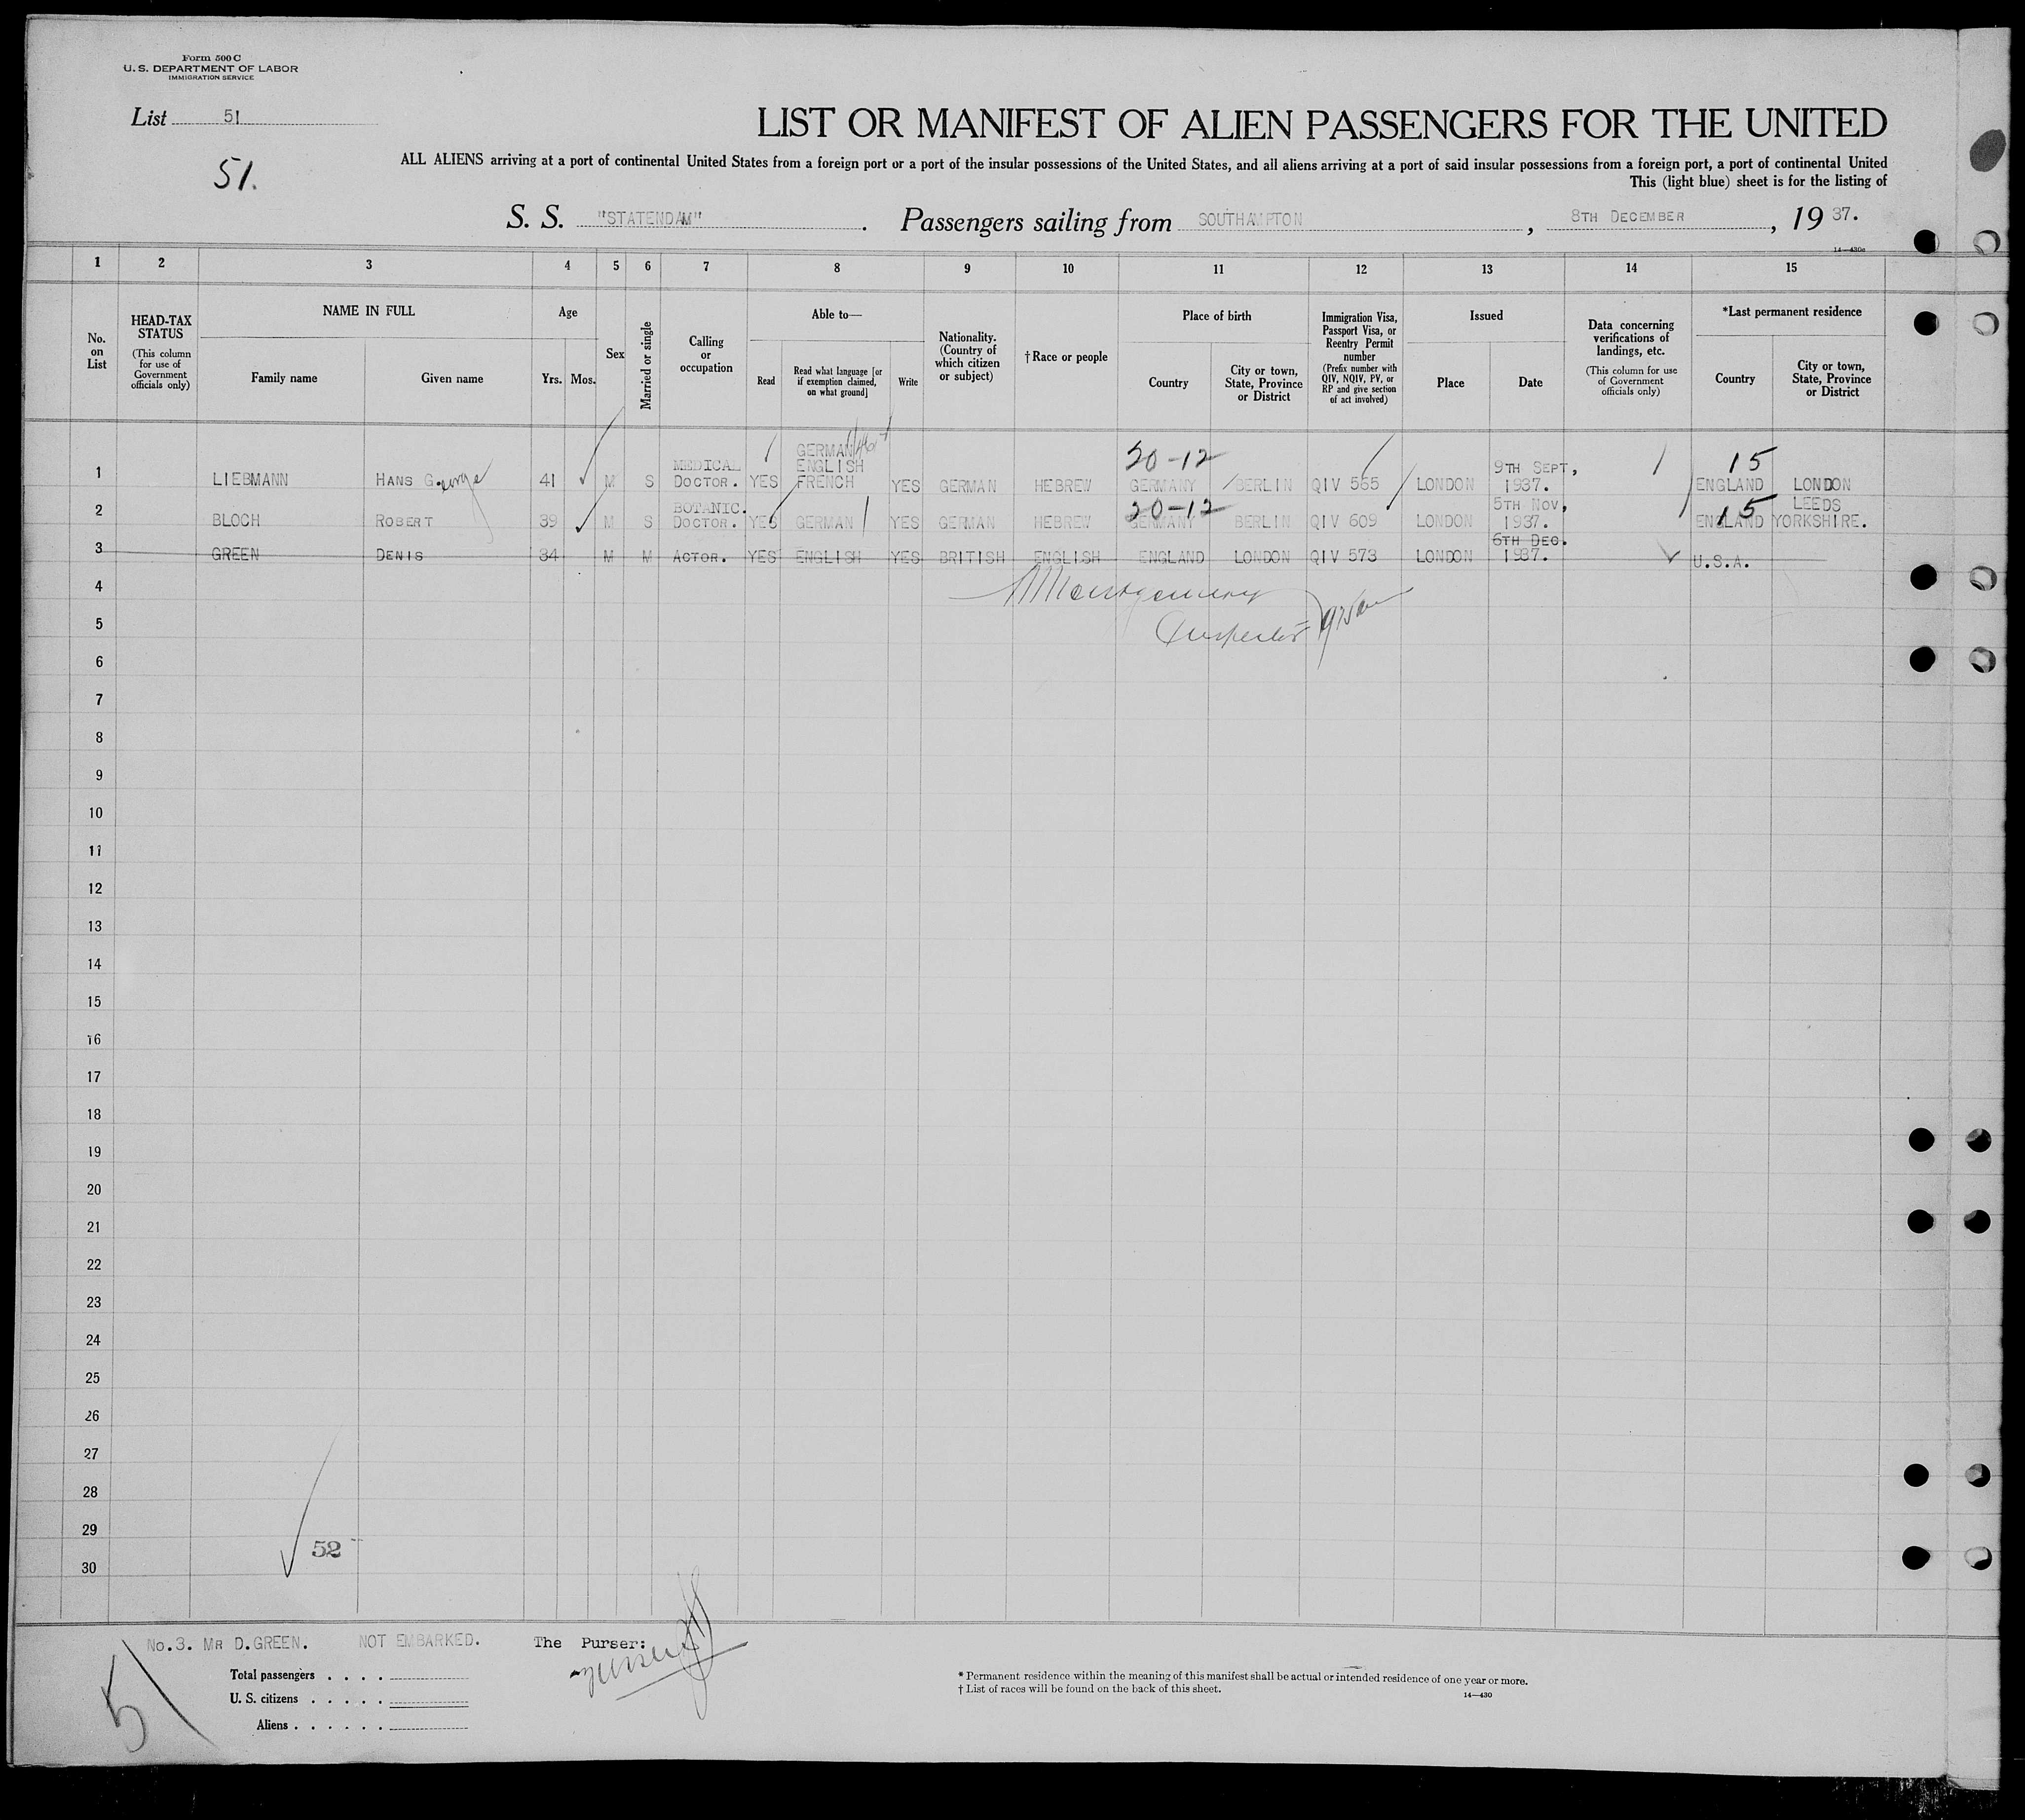 Form 500 C
U. S. DEPARTMENT OF LABOR
IMMIGRATION SERVICE
List 51
51.
LIST OR MANIFEST OF ALIEN PASSENGERS FOR THE UNITED
ALL ALIENS arriving at a port of continental United States from a foreign port or a port of the insular possessions of the United States, and all aliens arriving at a port of said insular possessions from a foreign port, a port of continental United
This (light blue) sheet is for the listing of
S. S. "STATENDAM". Passengers sailing from SOUTHAMPTON, 8TH DECEMBER, 19 37.
14—430c
1 2 3 4 5 6 7 8 9 10 11 12 13 14 15
No. on List
HEAD-TAX STATUS
(This column for use of Government officials only)
NAME IN FULL
Family name
Given name
Age
Yrs. Mos.
Sex
Married or single
Calling or occupation
Able to—
Read
Read what language [or if exemption claimed, on what ground]
Write
Nationality. (Country of which citizen or subject)
†Race or people
Place of birth
Country
City or town, State, Province or District
Immigration Visa, Passport Visa, or Reentry Permit number
(Prefix number with QIV, NQIV, PV, or RP and give section of act involved)
Issued
Place
Date
Data concerning verifications of landings, etc.
(This column for use of Government officials only)
*Last permanent residence
Country
City or town, State, Province or District
20-12 15
1 LIEBMANN HANS George 41 M S MEDICAL DOCTOR. YES GERMAN ENGLISH FRENCH YES GERMAN HEBREW GERMANY BERLIN QIV 565 LONDON 9TH SEPT, 1937. ENGLAND LONDON
20-12 15
2 BLOCH ROBERT 39 M S BOTANIC. DOCTOR. YES GERMAN YES GERMAN HEBREW GERMANY BERLIN QIV 609 LONDON 5TH NOV, 1937. ENGLAND LEEDS YORKSHIRE.
3 GREEN DENIS 34 M M ACTOR. YES ENGLISH YES BRITISH ENGLISH ENGLAND LONDON QIV 573 LONDON 6TH DEC. 1937. U.S.A.
Montgomery
Inspector
4
5
6
7
8
9
10
11
12
13
14
15
16
17
18
19
20
21
22
23
24
25
26
27
28
29
52
30
No.3. MR D.GREEN. NOT EMBARKED. The Purser:
51
Total passengers . . . .
U. S. citizens . . . . .
Aliens . . . . . .
* Permanent residence within the meaning of this manifest shall be actual or intended residence of one year or more.
† List of races will be found on the back of this sheet.
14—430